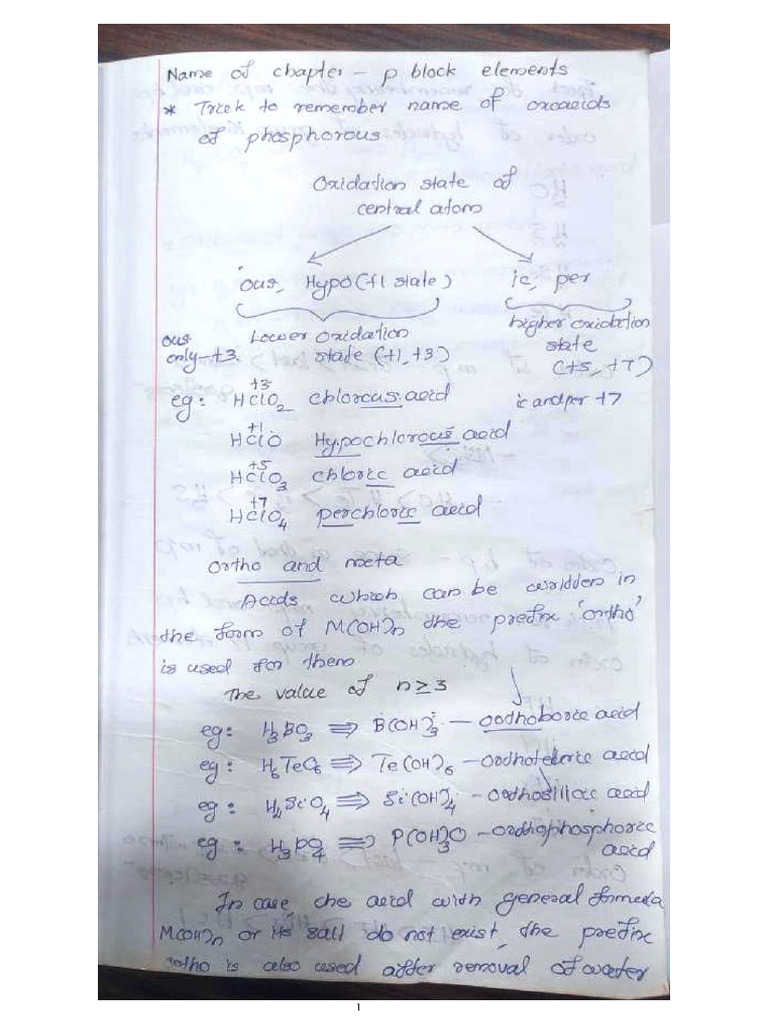 Name of chapter - p block elements
* Trick to remember name of oxoacids
of phosphorous
Oxidation state of
central atom
ous, Hypo (+1 state) ic, per
ous only-+3 Lower oxidation state (+1, +3) higher oxidation state (+5, +7)
eg: HClO2 +3 chlorous acid ic and per +7
HClO +1 Hypochlorous acid
HClO3 +5 chloric acid
HClO4 +7 perchloric acid
Ortho and meta
Acids which can be written in
the form of M(OH)n the prefix 'ortho'
is used for them
The value of n≥3
eg: H3BO3 ⇒ B(OH)3 - orthoboric acid
eg: H6TeO6 ⇒ Te(OH)6 - orthotelluric acid
eg: H4SiO4 ⇒ Si(OH)4 - orthosilicic acid
eg: H3PO4 ⇒ P(OH)3O - orthophosphoric
acid
In case, the acid with general formula
M(OH)n or its salt do not exist, the prefix
ortho is also used after removal of water
1